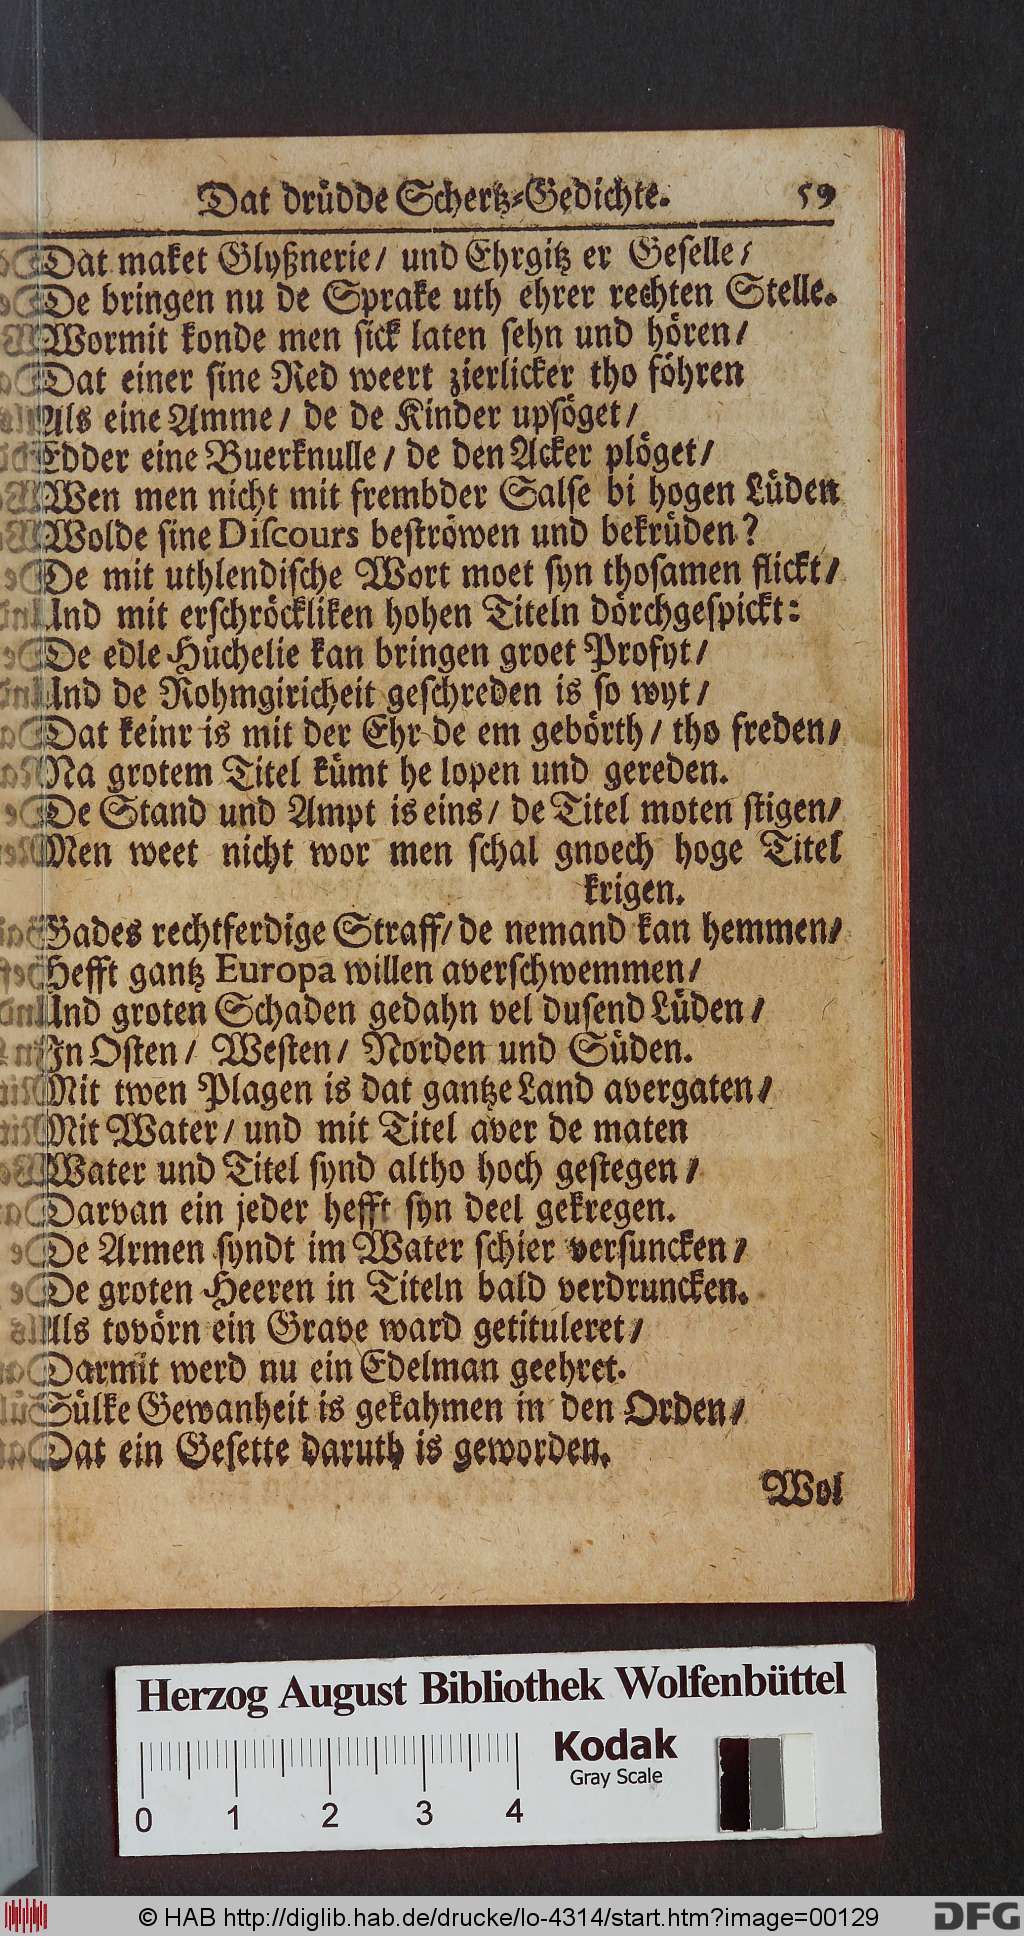 Dat drüdde Schertz-Gedichte. 59
Dat maket Glyßnerie/ und Ehrgitz er Geselle/
De bringen nu de Sprake uth ehrer rechten Stelle.
Wormit konde men sick laten sehn und hören/
Dat einer sine Red weert zierlicker tho föhren
Als eine Amme/ de de Kinder upsöget/
Edder eine Buerknulle/ de den Acker plöget/
Wen men nicht mit frembder Salse bi hogen Lüden
Wolde sine Discours beströwen und bekrüden?
De mit uthlendische Wort moet syn thosamen flickt/
Und mit erschröckliken hohen Titeln dörchgespickt:
De edle Hüchelie kan bringen groet Profyt/
Und de Rohmgiricheit geschreden is so wyt/
Dat keinr is mit der Ehr de em gebörth/ tho freden/
Na grotem Titel kümt he lopen und gereden.
De Stand und Ampt is eins/ de Titel moten stigen/
Men weet nicht wor men schal gnoech hoge Titel
krigen.
Gades rechtferdige Straff/ de nemand kan hemmen/
Hefft gantz Europa willen averschwemmen/
Und groten Schaden gedahn vel dusend Lüden/
In Osten/ Westen/ Norden und Süden.
Mit twen Plagen is dat gantze Land avergaten/
Mit Water/ und mit Titel aver de maten
Water und Titel synd altho hoch gestegen/
Darvan ein jeder hefft syn deel gekregen.
De Armen syndt im Water schier versuncken/
De groten Heeren in Titeln bald verdruncken.
Als tovörn ein Grave ward getituleret/
Darmit werd nu ein Edelman geehret.
Sülke Gewanheit is gekahmen in den Orden/
Dat ein Gesette daruth is geworden.
Wol
Herzog August Bibliothek Wolfenbüttel
Kodak
Gray Scale
0 1 2 3 4
© HAB http://diglib.hab.de/drucke/lo-4314/start.htm?image=00129
DFG